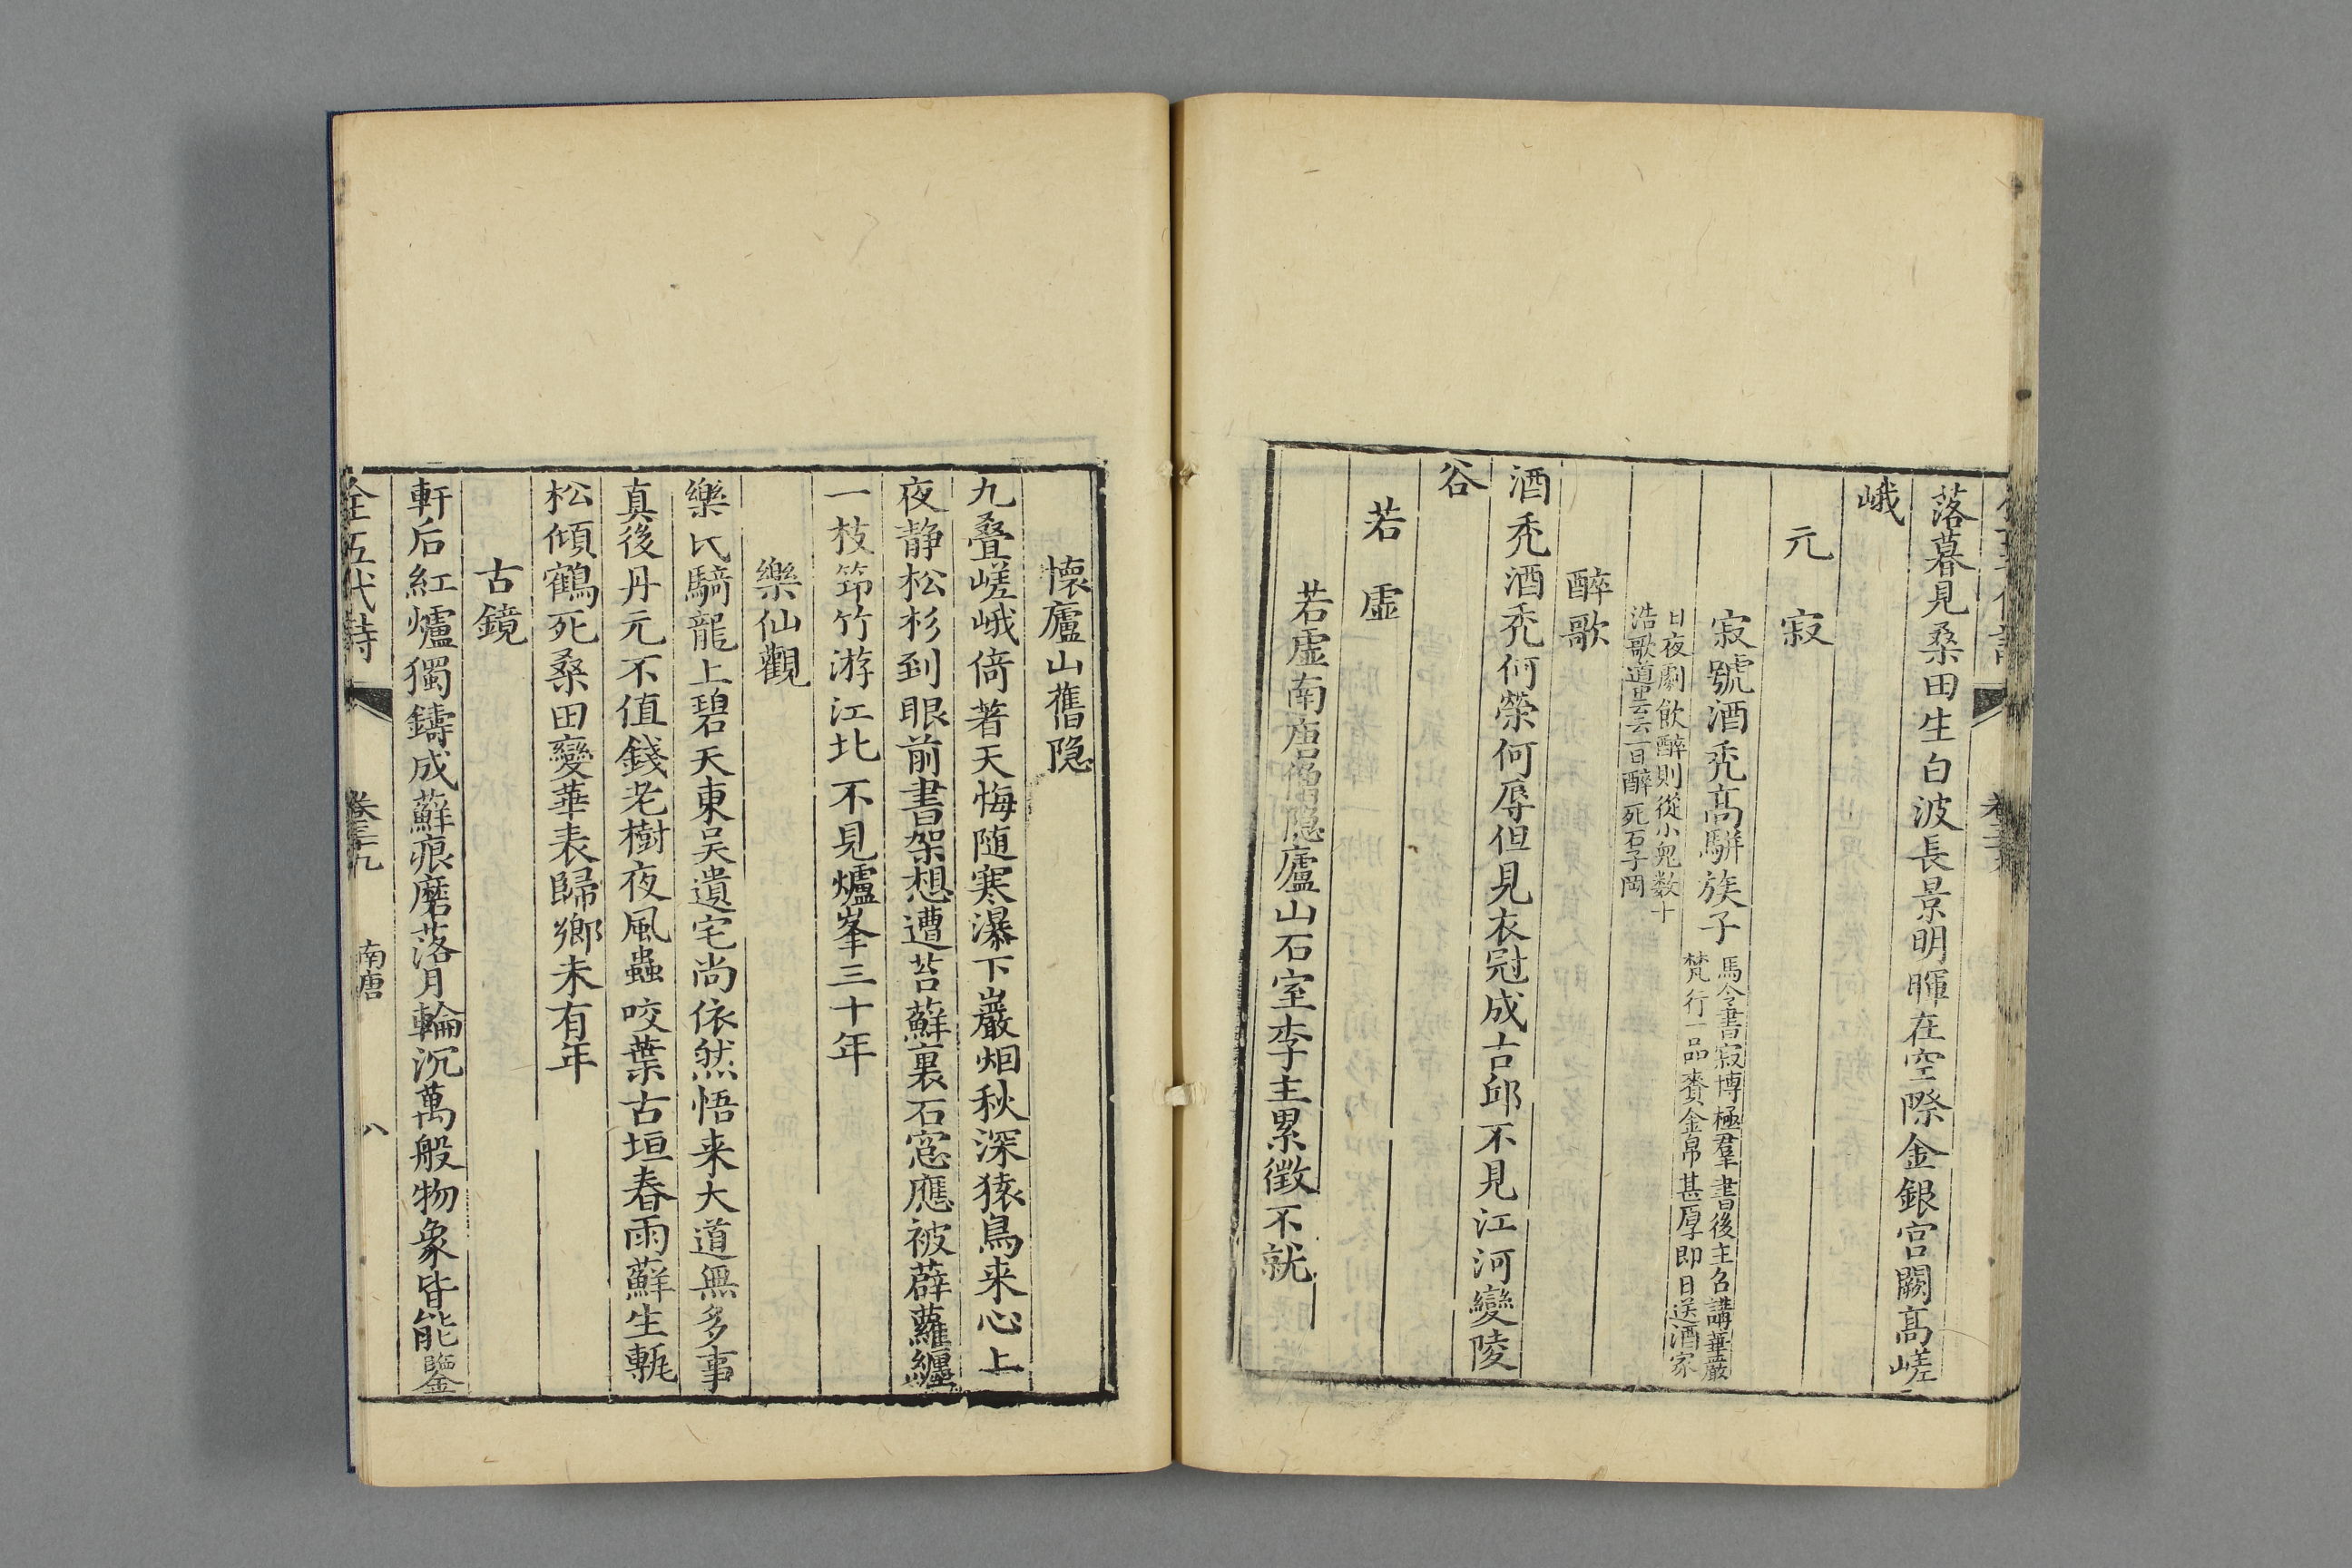 落暮見桑田生白波長景明暉在空際金銀宮闕高嵯
峨
元寂
寂號酒禿高駢族子馬令書寂博極羣書後主召講華嚴
梵行一品賚金帛甚厚即日送酒家
日夜劇飲醉則從小兒数十
浩歌道中云云一日醉死石子岡
醉歌
酒禿酒禿何榮何辱但見衣冠成古邱不見江河變陵
谷
若虛
若虛南唐僧隐廬山石室李主累徵不就
懷廬山舊隐
九叠嵯峨倚著天悔随寒瀑下巖烟秋深猿鳥来心上
夜静松杉到眼前書架想遭苔蘚裏石窓應被薜蘿纏
一枝筇竹游江北不見爐峯三十年
樂仙觀
樂氏騎龍上碧天東吴遺宅尚依然悟来大道無多事
真後丹元不值錢老樹夜風蟲咬葉古垣春雨蘚生甎
松傾鶴死桑田變華表歸鄉未有年
古鏡
軒后紅爐獨鑄成蘚痕磨落月輪沉萬般物象皆能鑒
全五代詩 卷三十九 南唐 八